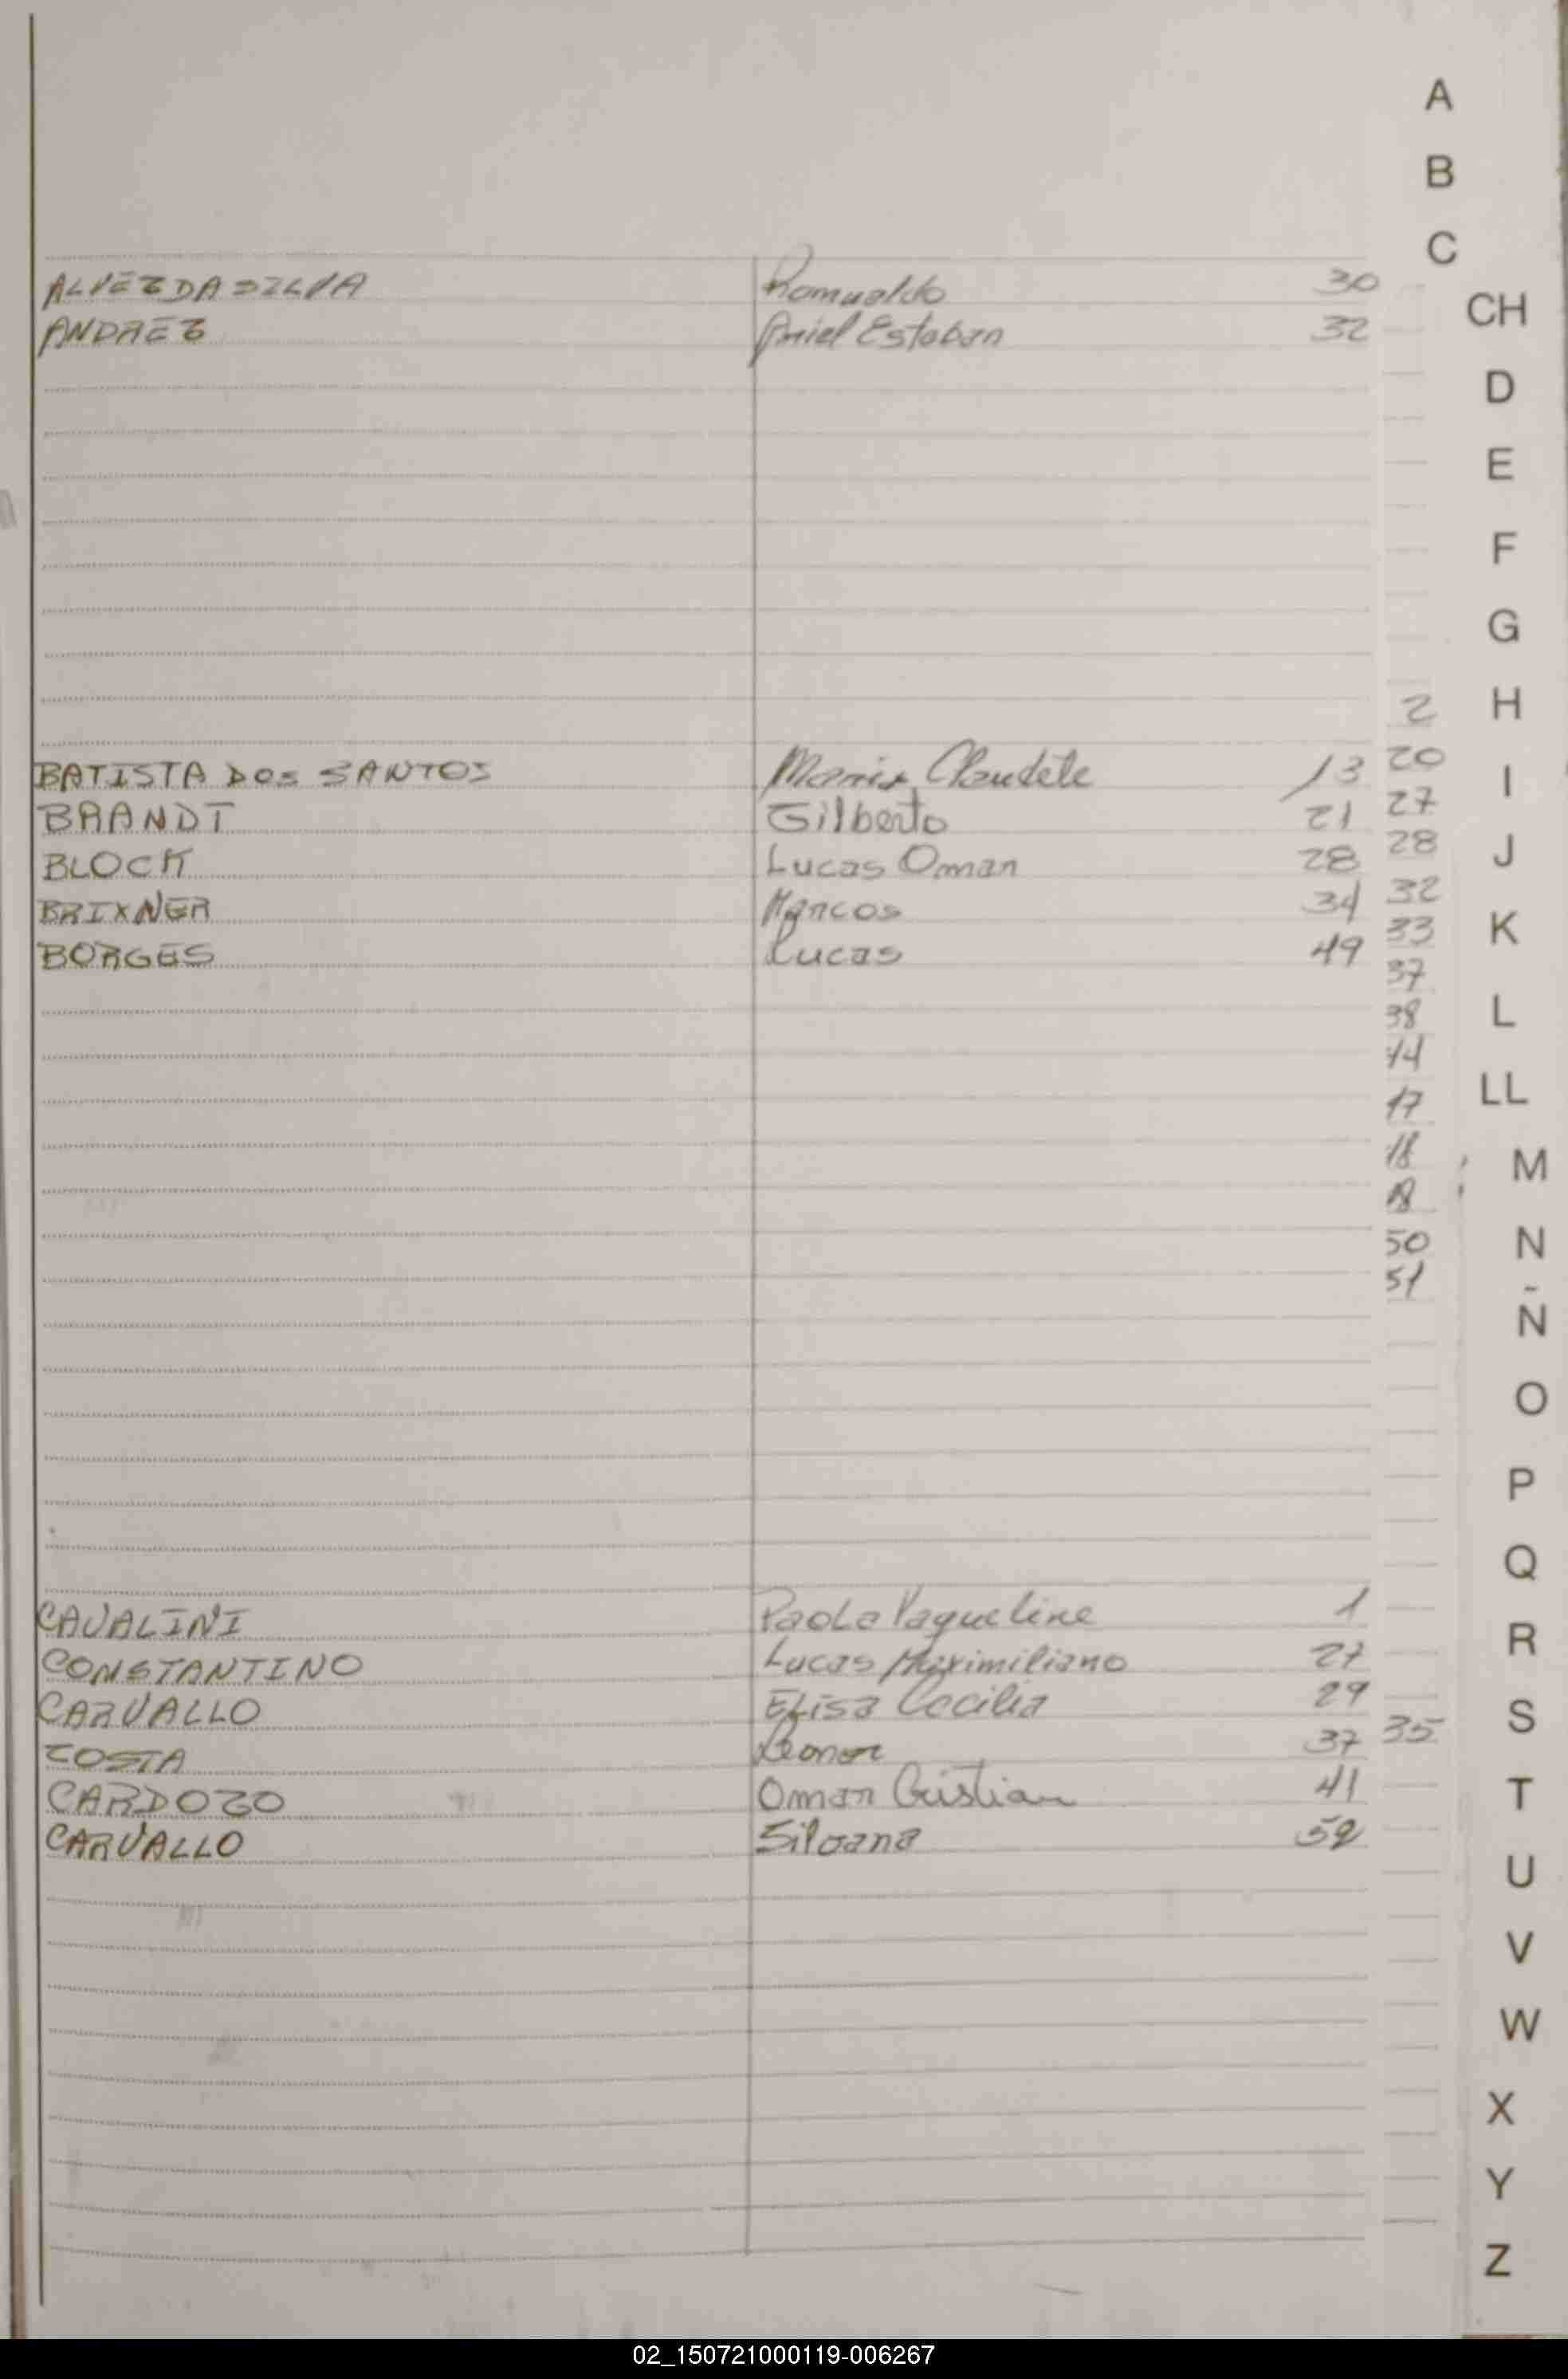 A
B
C
ALVEZ DA SILVA Romualdo 30
CH
ANDREZ Ariel Esteban 32
D
E
F
G
2 H
BATISTA DOS SANTOS Maria Claudete 13 20
I
BRANDT Gilberto 21 27
BLOCK Lucas Omar 28 28
J
BRIXNER Marcos 34 32
BORGES Lucas 49 33
K
37
38 L
44
LL
47
48
M
50 N
51
Ñ
O
P
Q
CAVALINI Paola Yaqueline 1
R
CONSTANTINO Lucas Maximiliano 27
CARVALLO Elisa Cecilia 29
S
COSTA Leonor 37 35
CARDOZO Omar Cristian 41
T
CARVALLO Silvana 52
U
V
W
X
Y
Z
02_150721000119-006267